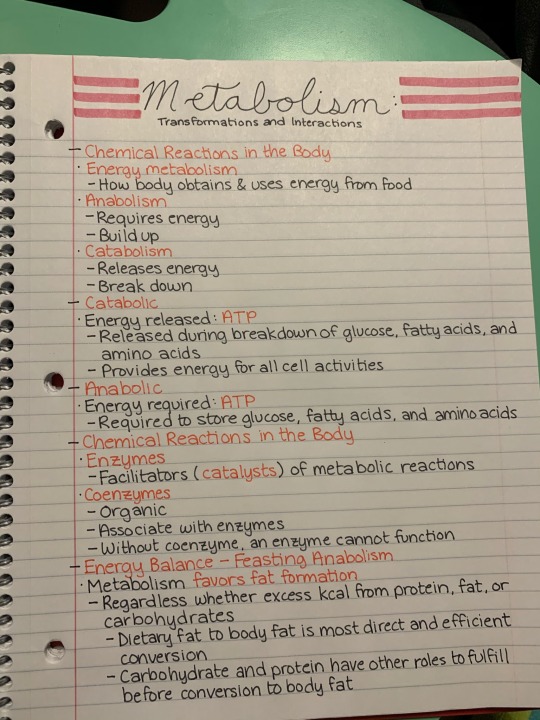 Metabolism:
Transformations and Interactions
- Chemical Reactions in the Body
· Energy metabolism
- How body obtains & uses energy from food
· Anabolism
- Requires energy
- Build up
· Catabolism
- Releases energy
- Break down
- Catabolic
· Energy released: ATP
- Released during breakdown of glucose, fatty acids, and
amino acids
- Provides energy for all cell activities
- Anabolic
· Energy required: ATP
- Required to store glucose, fatty acids, and amino acids
- Chemical Reactions in the Body
· Enzymes
- Facilitators (catalysts) of metabolic reactions
· Coenzymes
- Organic
- Associate with enzymes
- Without coenzyme, an enzyme cannot function
- Energy Balance - Feasting Anabolism
· Metabolism favors fat formation
- Regardless whether excess kcal from protein, fat, or
carbohydrates
- Dietary fat to body fat is most direct and efficient
conversion
- Carbohydrate and protein have other roles to fulfill
before conversion to body fat